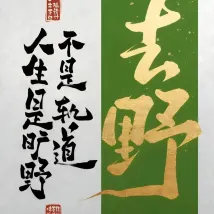 人生是旷野
不是轨道
去野